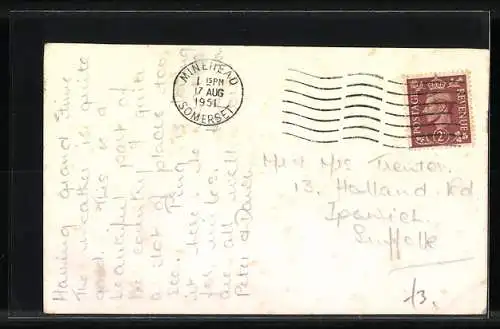 Having grand time
The weather is quite
good. This is a
beautiful part of
the country & quite
a lot of places to
see.
it here
for miles.
are all well
Peter & Doreen
MINEHEAD
1 15PM
17 AUG
1951
SOMERSET
POSTAGE REVENUE
2D
Mr & Mrs Trenter
13. Holland Rd
Ipswich
Suffolk
/3.